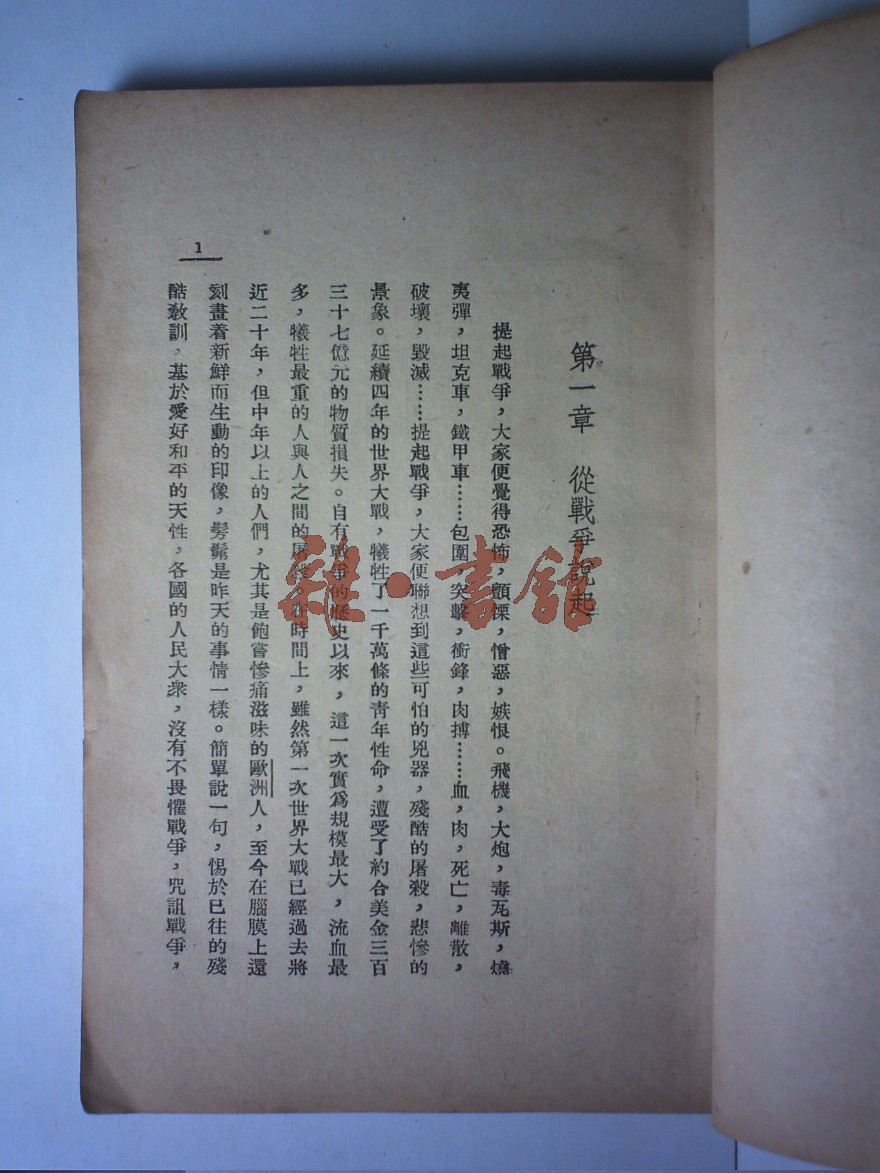 第一章　從戰爭說起
提起戰爭，大家便覺得恐怖，顫慄，憎惡，嫉恨。飛機，大炮，毒瓦斯，燒
夷彈，坦克車，鐵甲車……包圍，突擊，衝鋒，肉搏……血，肉，死亡，離散，
破壞，毀滅……提起戰爭，大家便聯想到這些可怕的兇器，殘酷的屠殺，悲慘的
景象。延續四年的世界大戰，犧牲了一千萬條的靑年性命，遭受了約合美金三百
三十七億元的物質損失。自有戰爭的歷史以來，這一次實爲規模最大，流血最
多，犧牲最重的人與人之間的屠殺。在時間上，雖然第一次世界大戰已經過去將
近二十年，但中年以上的人們，尤其是飽嘗慘痛滋味的歐洲人，至今在腦膜上還
刻畫着新鮮而生動的印像，髣髴是昨天的事情一樣。簡單說一句，惕於已往的殘
酷敎訓，基於愛好和平的天性，各國的人民大衆，沒有不畏懼戰爭，咒詛戰爭，
1
雜·書館